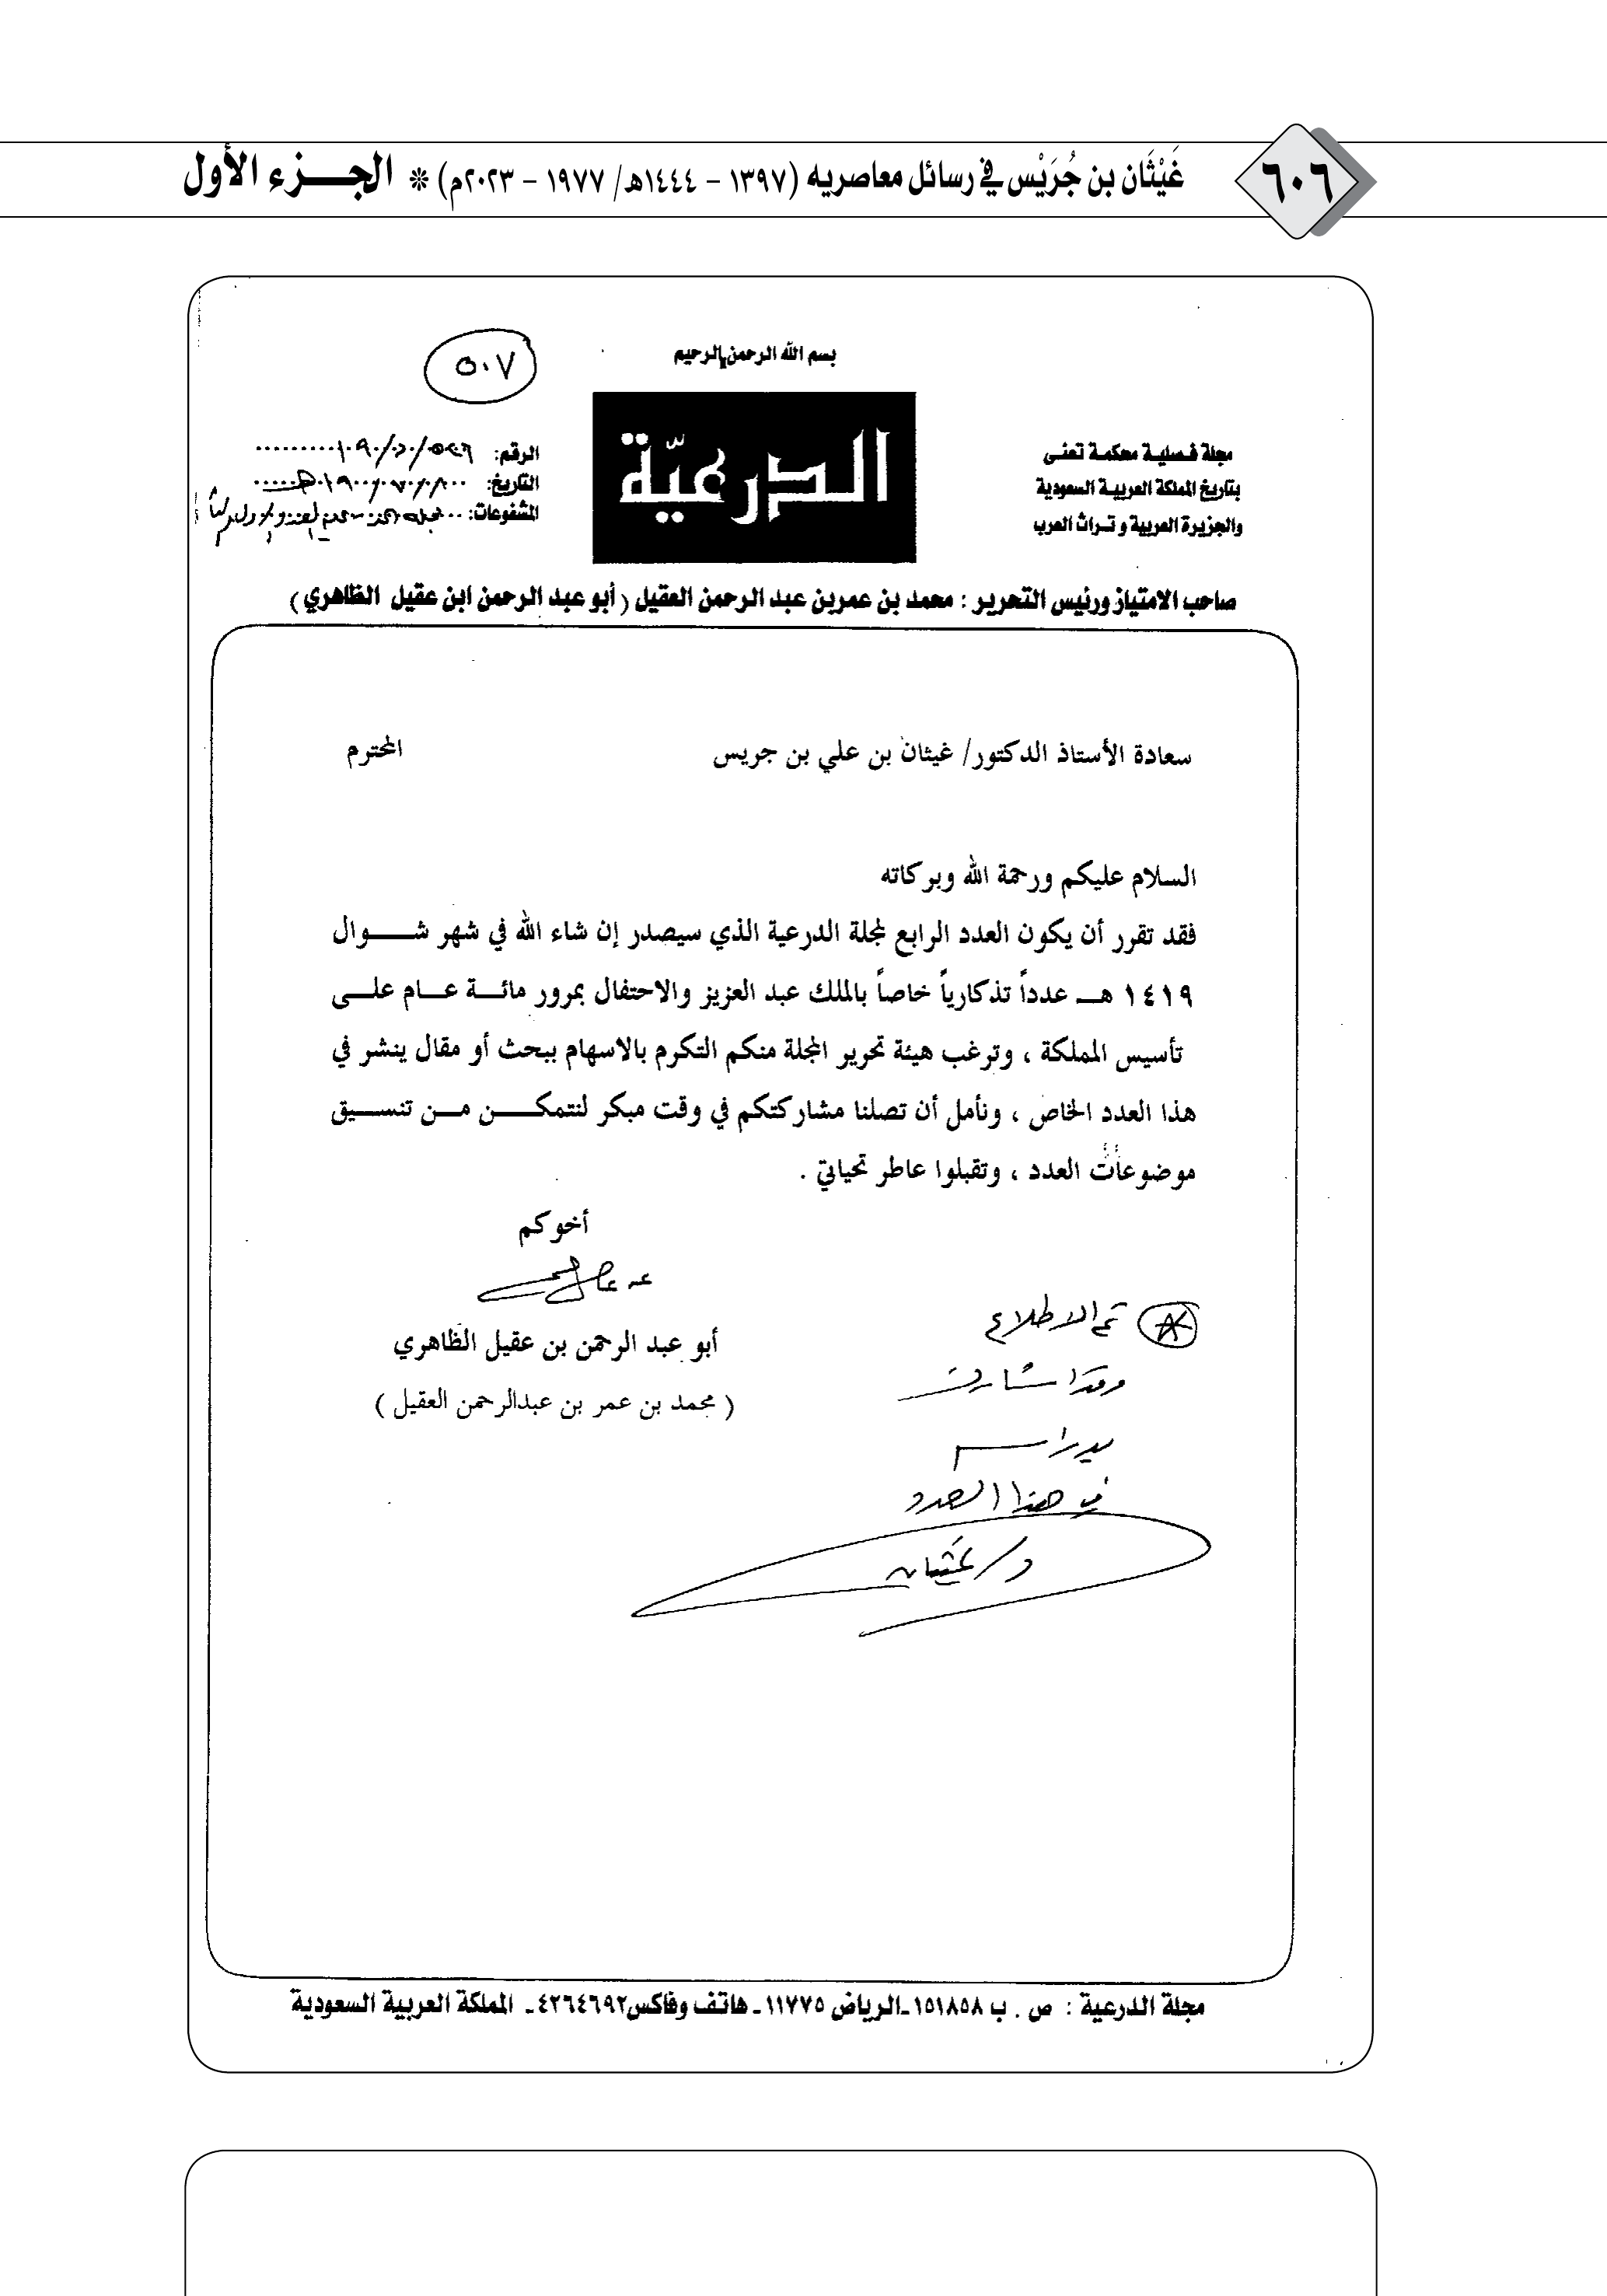 ٦٠٦
غَيْثَان بن جُرَيْس في رسائل معاصريه (١٣٩٧ - ١٤٤٤هـ/ ١٩٧٧ - ٢٠٢٣م) * الجـــزء الأول
٥٠٧
بسم الله الرحمن الرحيم
الدرعيّة
مجلة فصلية محكمة تعنى
بتاريخ المملكة العربية السعودية
والجزيرة العربية وتراث العرب
الرقم:
التاريخ:
المشفوعات:
صاحب الامتياز ورئيس التحرير : محمد بن عمر بن عبد الرحمن العقيل ( أبو عبد الرحمن ابن عقيل الظاهري )
سعادة الأستاذ الدكتور/ غيثان بن علي بن جريس المحترم
السلام عليكم ورحمة الله وبركاته
فقد تقرر أن يكون العدد الرابع لمجلة الدرعية الذي سيصدر إن شاء الله في شهر شـــوال
١٤١٩ هــ عدداً تذكارياً خاصاً بالملك عبد العزيز والاحتفال بمرور مائـة عـام علـى
تأسيس المملكة ، وترغب هيئة تحرير المجلة منكم التكرم بالاسهام ببحث أو مقال ينشر في
هذا العدد الخاص ، ونأمل أن تصلنا مشاركتكم في وقت مبكر لنتمكــن مـن تنسـيق
موضوعات العدد ، وتقبلوا عاطر تحياتي .
أخوكم
أبو عبد الرحمن بن عقيل الظاهري
( محمد بن عمر بن عبدالرحمن العقيل )
تم الاطلاع
في هذا العدد
د/ غيثان
مجلة الدرعية : ص . ب ١٥١٨٥٨ ـ الرياض ١١٧٧٥ ـ هاتف وفاكس ٤٢٦٤٦٩٢ ـ المملكة العربية السعودية